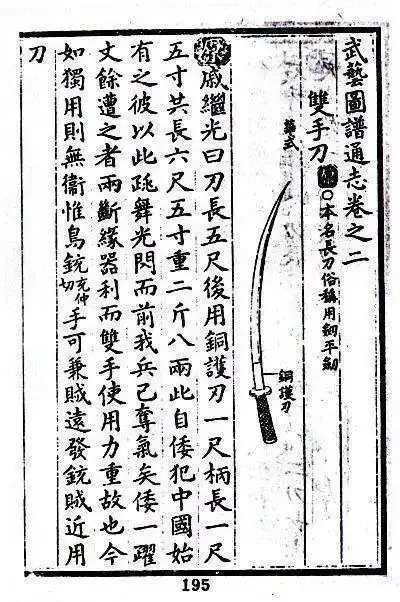 武藝圖譜通志卷之二
雙手刀 ○本名長刀俗稱用劒平劒
華式
銅護刃
戚繼光曰刀長五尺後用銅護刃一尺柄長一尺
五寸共長六尺五寸重二斤八兩此自倭犯中國始
有之彼以此跳舞光閃而前我兵已奪氣矣倭一躍
丈餘遭之者兩斷緣器利而雙手使用力重故也今
如獨用則無衞惟鳥銃充仲切手可兼賊遠發銃賊近用
刀
195